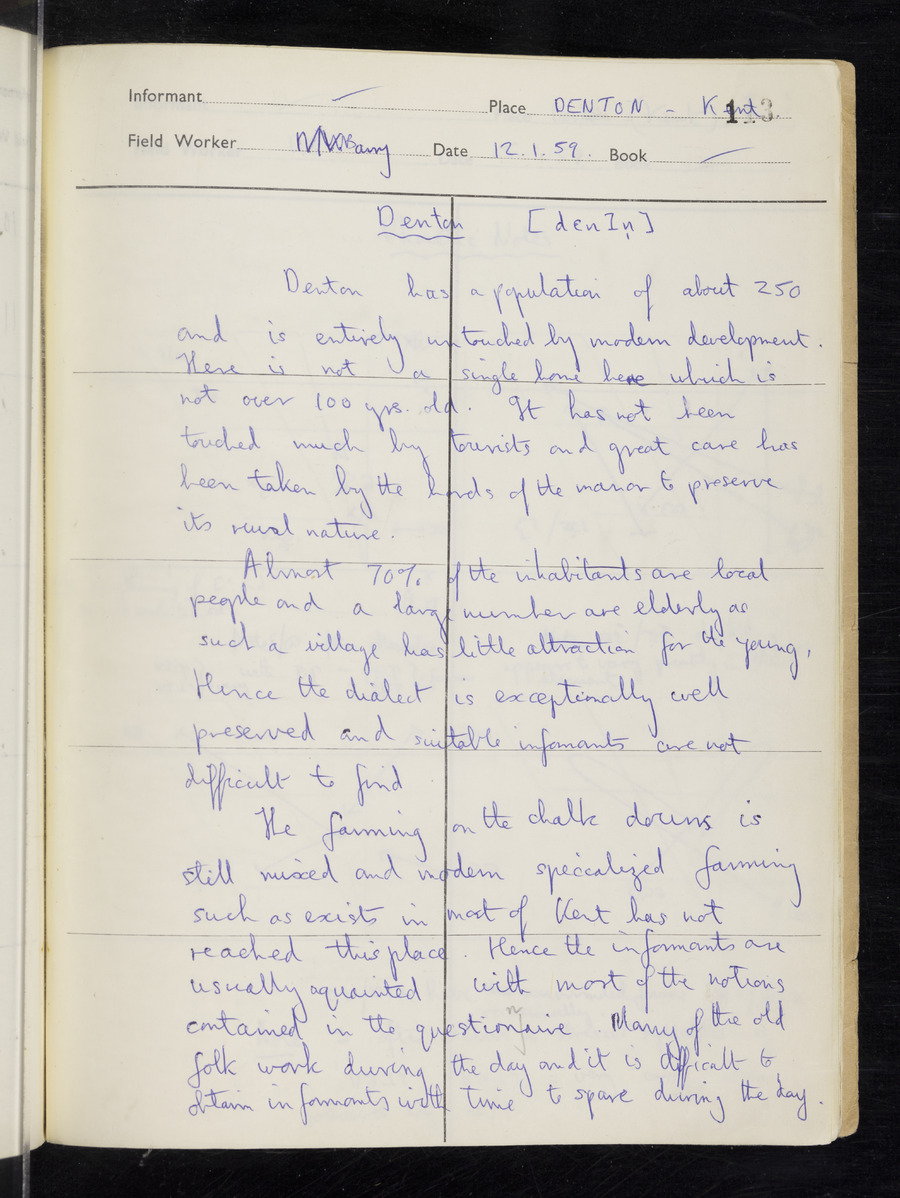 Informant Place DENTON - Kent 113
Field Worker Date 12.1.59. Book
Denton [denIn̩]
Denton has a population of about 250
and is entirely untouched by modern development.
Here is not a single home here which is
not over 100 yrs. old. It has not been
touched much by tourists and great care has
been taken by the lords of the manor to preserve
its rural nature.
Almost 70% of the inhabitants are local
people and a large number are elderly as
such a village has little attraction for the young,
Hence the dialect is exceptionally well
preserved and suitable infomants are not
difficult to find
The farming on the chalk downs is
still mixed and modern specialized farming
such as exists in most of Kent has not
reached this place. Hence the informants are
usually aquainted with most of the notions
contained in the questionaire. Many of the old
folk work during the day and it is difficult to
obtain informants with time to spare during the day.